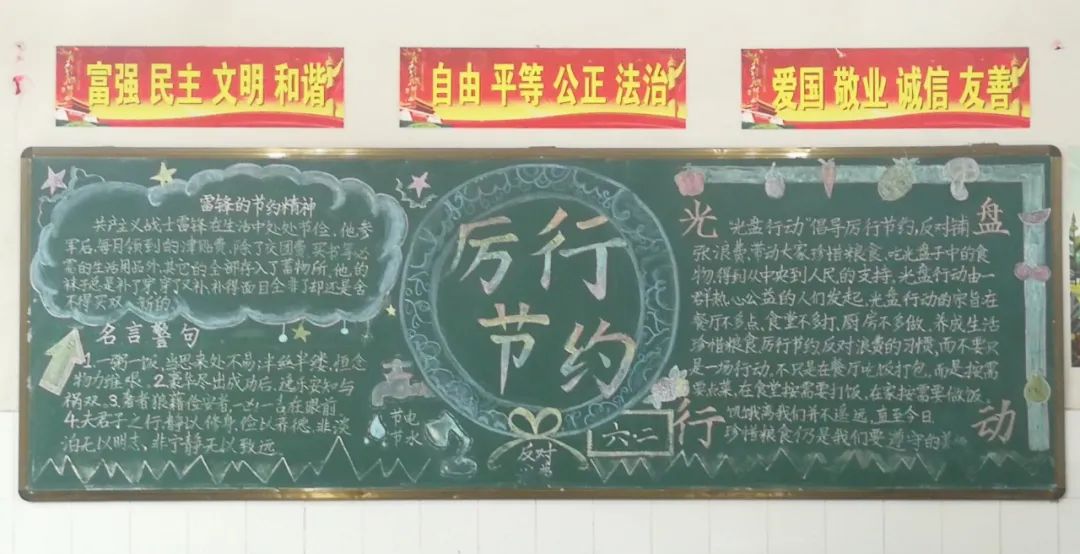 富强 民主 文明 和谐
自由 平等 公正 法治
爱国 敬业 诚信 友善
雷锋的节约精神
共产主义战士雷锋在生活中处处节俭，他参
军后，每月领到的津贴费，除了交团费、买书等必
需的生活用品外，其它的全部存入了蓄物所，他的
袜子总是补了穿，穿了又补，补得面目全非了却还是舍
不得买双新的。
名言警句
1.一粥一饭，当思来处不易；半丝半缕，恒念
物力维艰。2.豪华尽出成功后，逸乐安知与
祸双。3.奢者狼藉俭者安，一凶一吉在眼前
4.夫君子之行，静以修身，俭以养德，非淡
泊无以明志，非宁静无以致远
厉行
节约
节电
节水
反对
六二
光盘行动
“光盘行动”倡导厉行节约，反对铺
张浪费，带动大家珍惜粮食、吃光盘子中的食
物，得到从中央到人民的支持。光盘行动由一
群热心公益的人们发起，光盘行动的宗旨在
餐厅不多点、食堂不多打、厨房不多做。养成生活
珍惜粮食厉行节约反对浪费的习惯，而不要只
是一场行动。不只是在餐厅吃饭打包，而是按需
要点菜，在食堂按需要打饭，在家按需要做饭。
饥饿离我们并不遥远，直至今日
珍惜粮食仍是我们要遵守的